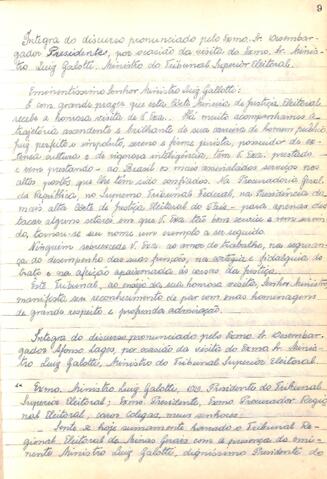 9
Íntegra do discurso pronunciado pelo Exmo. Sr. Desembar-
gador Presidente, por ocasião da visita do Exmo. Sr. Minis-
tro Luiz Galotti, Ministro do Tribunal Superior Eleitoral.
Eminentíssimo Senhor Ministro Luiz Gallotti:
É com grande prazer que esta Côrte Mineira de Justiça Eleitoral
recebe a honrosa visita de V. Exa. Há muito acompanhamos a
trajetória ascendente e brilhante de sua carreira de homem público,
juiz perfeito e impoluto, sereno e firme jurista, possuidor de ex-
tensa cultura e de vigorosa inteligência, tem V. Exa. prestado
e vem prestando - ao Brasil os mais assinalados serviços nos
altos postos que lhe têm sido confiados. Na Procuradoria Geral
da República, no Supremo Tribunal Federal, na Presidência da
mais alta Côrte de Justiça Eleitoral do País - para apenas des-
tacar alguns setores em que V. Exa. tão bem serviu e vem servin-
do, tornou-se seu nome um exemplo a ser seguido.
Ninguém sobrexcede V. Exa. no amor do trabalho, na segurança
do desempenho das suas funções, na cortezia e fidalguia de
trato e na afeição apaixonada às coisas da justiça.
Este Tribunal, ao ensejo da sua honrosa visita, Senhor Ministro,
manifesta seu reconhecimento de par com suas homenagens
de grande respeito e profunda admiração.
Íntegra do discurso pronunciado pelo Exmo. Sr. Desembar-
gador Afonso Lages, por ocasião da visita do Exmo. Sr. Minis-
tro Luiz Galotti, Ministro do Tribunal Superior Eleitoral.
" Exmo. Ministro Luiz Galotti, DD. Presidente do Tribunal
Superior Eleitoral; Exmo. Presidente, Exmo. Procurador Regio
nal Eleitoral, caros colegas, meus senhores:
Sente-se hoje sumamente honrado o Tribunal Re-
gional Eleitoral de Minas Gerais com a presença do emi-
nente Ministro Luiz Galotti, digníssimo Presidente do